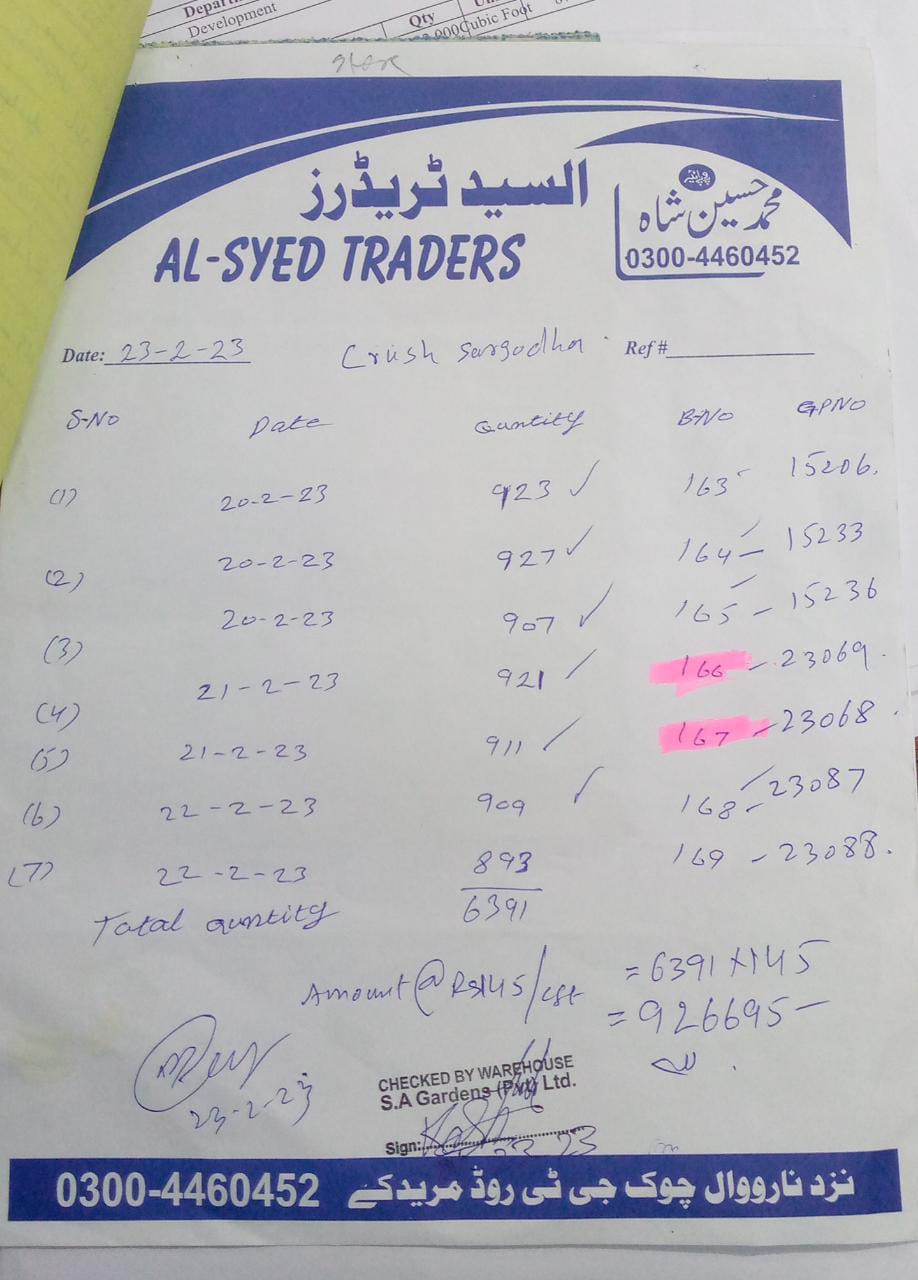 Development
Qty
Cubic Foot
Store
السید ٹریڈرز
AL-SYED TRADERS
پروپرائیٹر
محمد حسین شاہ
0300-4460452
Date: 23-2-23 Crush Sargodha Ref #
S-No Date Quntity B-No GPNO
(1) 20-2-23 923 ✓ 163 15206.
(2) 20-2-23 927 ✓ 164 - 15233
(3) 20-2-23 907 ✓ 165 - 15236
(4) 21-2-23 921 ✓ 166 - 23069.
(5) 21-2-23 911 ✓ 167 - 23068
(6) 22-2-23 909 ✓ 168 - 23087
(7) 22-2-23 893 169 - 23088.
Total quntity 6391
Amount @ Rs145/cft = 6391 x 145
= 926695 -
23-2-23
CHECKED BY WAREHOUSE
S.A Gardens (Pvt) Ltd.
Sign:
0300-4460452 نزد نارووال چوک جی ٹی روڈ مریدکے